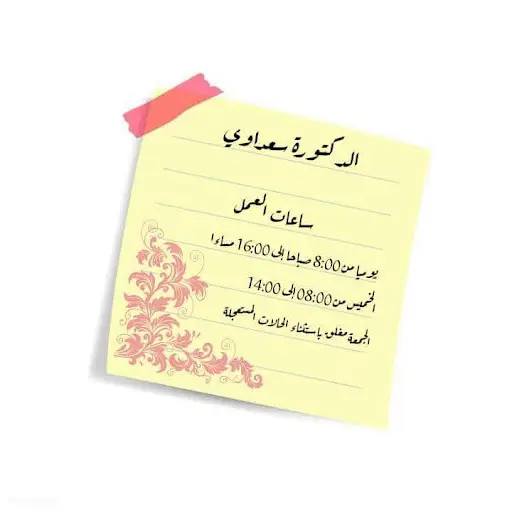 الدكتورة سعداوي
ساعات العمل
يوميا من 8:00 صباحا إلى 16:00 مساءا
الخميس من 08:00 إلى 14:00
الجمعة مغلق باستثناء الحالات المستعجلة